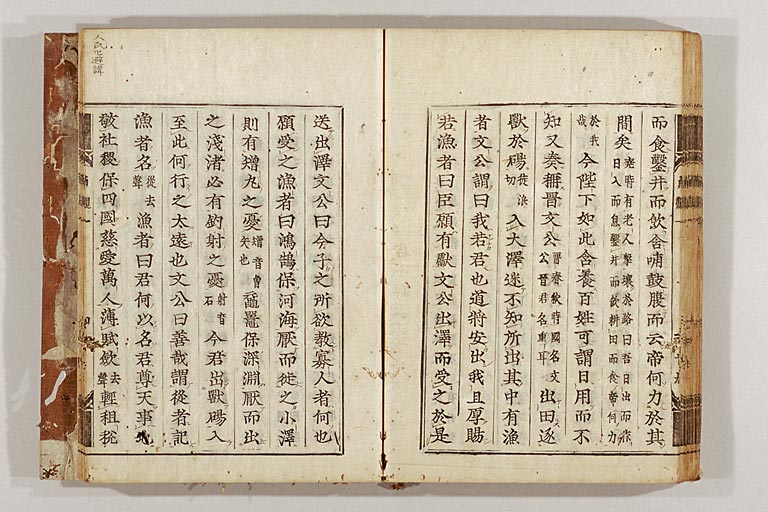 而食鑿井而飲含哺鼓腹而云帝何力於其
間矣堯時有老人擊壤於路曰吾日出而作日入而息鑿井而飲耕田而食帝何力
於我哉今陛下如此含養百姓可謂日用而不
知又奏稱晋文公晋春秋時國名文公晋君名重耳出田逐
獸於碭徒浪切入大澤迷不知所出其中有漁
者文公謂曰我若君也道將安出我且厚賜
若漁者曰臣願有獻文公出澤而受之於是
送出澤文公曰今子之所欲教寡人者何也
願受之漁者曰鴻鵠保河海厭而徙之小澤
則有矰丸之憂矰音曾矢也黿鼉保深淵厭而出
之淺渚必有釣射之憂射音石今君出獸碭入
至此何行之太遠也文公曰善哉謂從者記
漁者名從去聲漁者曰君何以名君尊天事地
敬社稷保四國慈愛萬人薄賦斂去聲輕租稅
人民之避諱